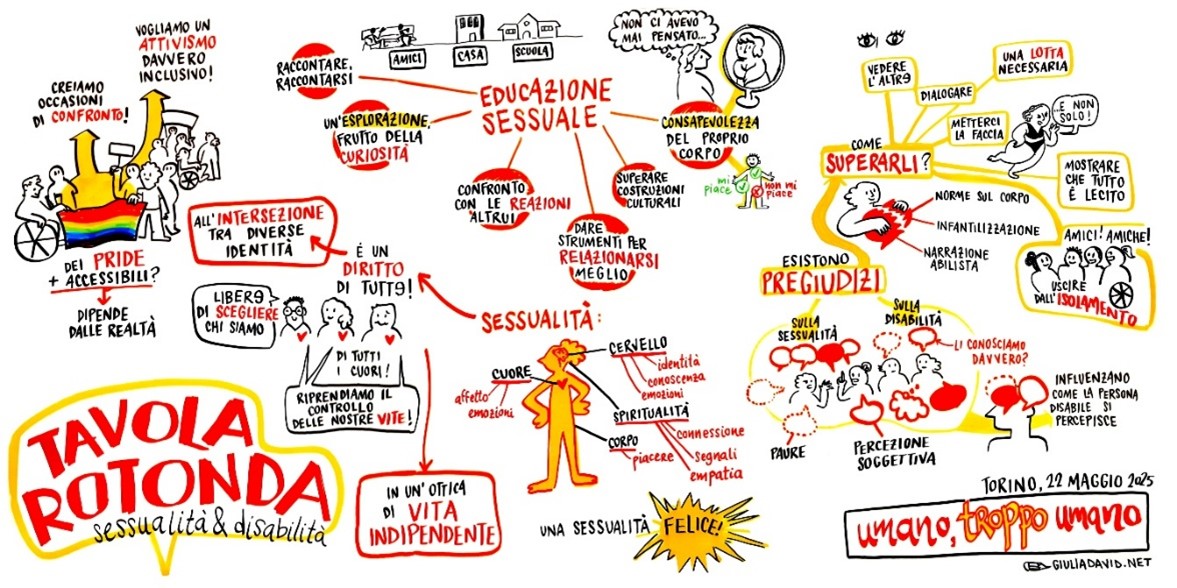 VOGLIAMO UN
ATTIVISMO
DAVVERO
INCLUSIVO!
CREIAMO
OCCASIONI
DI CONFRONTO!
DEI PRIDE
+ ACCESSIBILI?
DIPENDE
DALLE REALTÀ
AMICI
CASA
SCUOLA
EDUCAZIONE
SESSUALE
RACCONTARE,
RACCONTARSI
UN'ESPLORAZIONE,
FRUTTO DELLA
CURIOSITÀ
CONFRONTO
CON LE REAZIONI
ALTRUI
DARE
STRUMENTI PER
RELAZIONARSI
MEGLIO
SUPERARE
COSTRUZIONI
CULTURALI
CONSAPEVOLEZZA
DEL PROPRIO
CORPO
NON CI AVEVO
MAI PENSATO...
mi
piace
non mi
piace
SESSUALITÀ:
È UN
DIRITTO
DI TUTTƏ!
ALL'INTERSEZIONE
TRA DIVERSE
IDENTITÀ
LIBERƏ
DI SCEGLIERE
CHI SIAMO
DI TUTTI
I CUORI!
RIPRENDIAMO IL
CONTROLLO
DELLE NOSTRE VITE!
IN UN' OTTICA
DI VITA
INDIPENDENTE
CERVELLO
identità
conoscenza
emozioni
CUORE
affetto
emozioni
SPIRITUALITÀ
connessione
segnali
empatia
CORPO
piacere
UNA SESSUALITÀ
FELICE!
ESISTONO
PREGIUDIZI
SULLA
SESSUALITÀ
SULLA
DISABILITÀ
LI CONOSCIAMO
DAVVERO?
PAURE
PERCEZIONE
SOGGETTIVA
INFLUENZANO
COME LA PERSONA
DISABILE SI
PERCEPISCE
NORME SUL CORPO
INFANTILIZZAZIONE
NARRAZIONE
ABILISTA
COME
SUPERARLI?
VEDERE
L'ALTRƏ
DIALOGARE
UNA LOTTA
NECESSARIA
METTERCI
LA FACCIA
...E NON
SOLO!
MOSTRARE
CHE TUTTO
È LECITO
AMICI! AMICHE!
USCIRE
DALL'ISOLAMENTO
TAVOLA
ROTONDA
sessualità & disabilità
TORINO, 22 MAGGIO 2025
umano, troppo umano
GIULIADAVID.NET